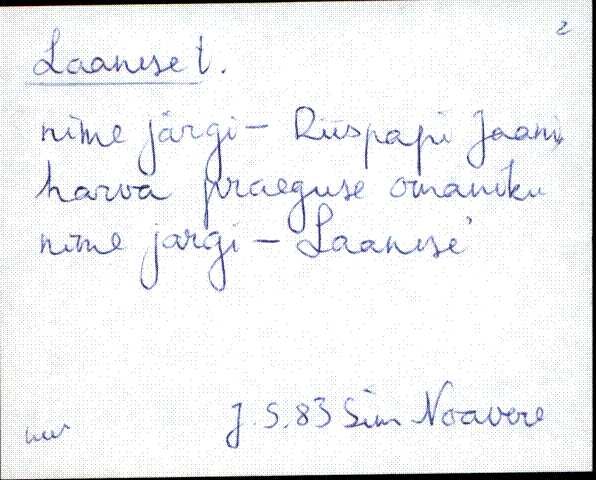 2
Laanese t.
nime järgi – Riispapi Jaan,
harva praeguse omaniku
nime järgi – Laanese'
J. S. 83 Sim Noavere